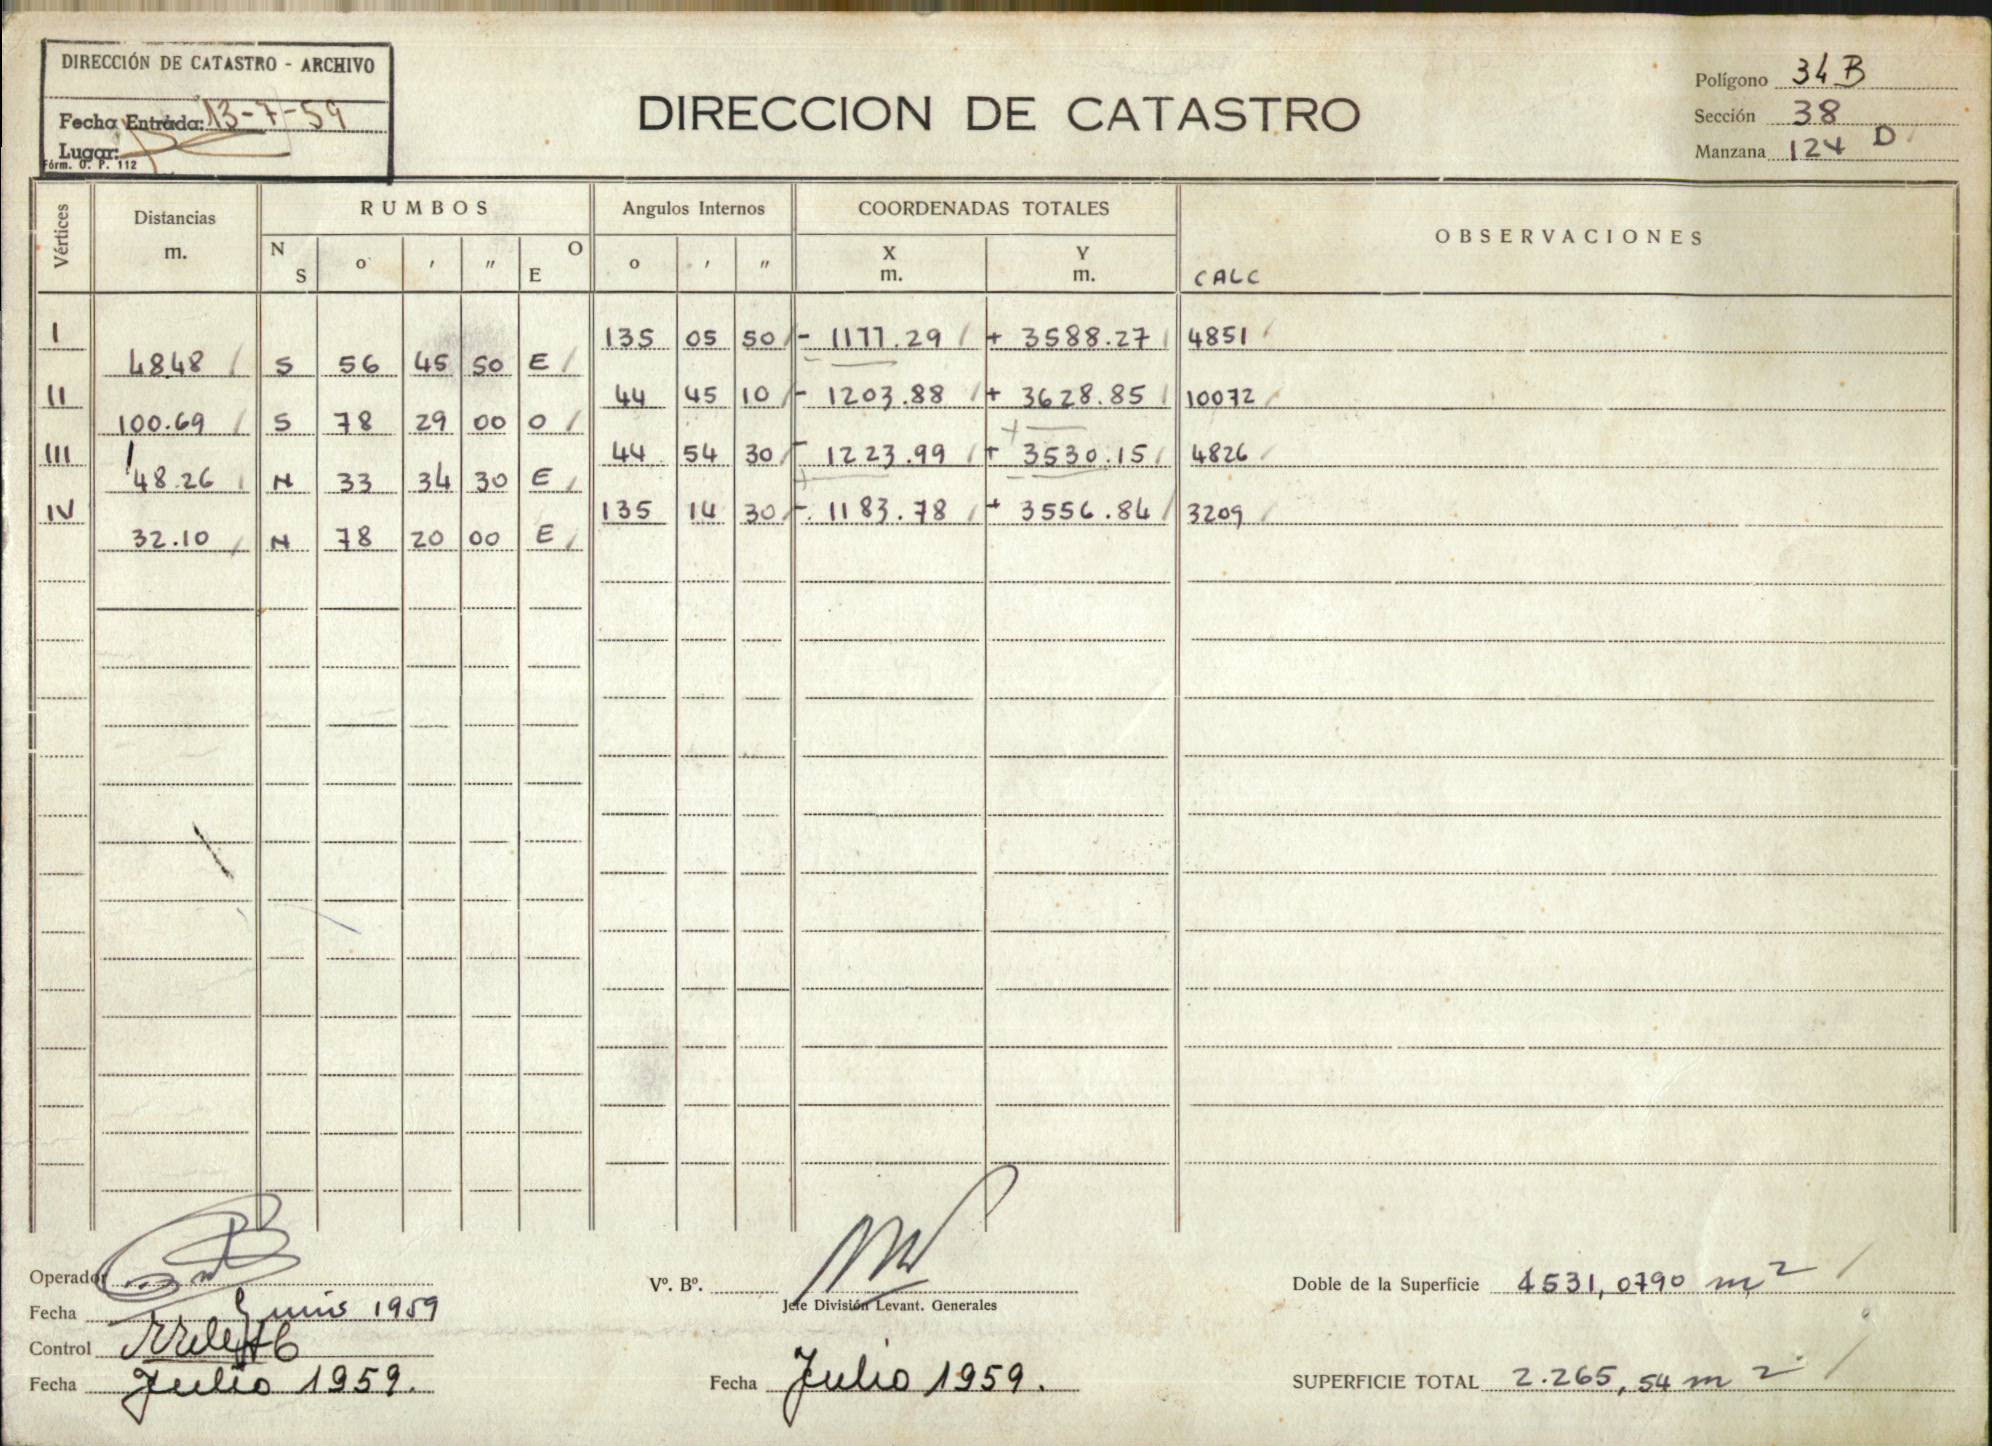 DIRECCIÓN DE CATASTRO - ARCHIVO
Fecha Entrada: 13-7-59
Lugar:
Fórm. O. P. 112
DIRECCION DE CATASTRO
Polígono 34 B
Sección 38
Manzana 124 D
Vértices
Distancias
m.
RUMBOS
N S
o ' "
O E
Angulos Internos
o ' "
COORDENADAS TOTALES
X
m.
Y
m.
OBSERVACIONES
CALC
I 135 05 50 - 1177.29 + 3588.27 4851
48.48 S 56 45 50 E
II 44 45 10 - 1203.88 + 3628.85 10072
100.69 S 78 29 00 O
III 44 54 30 - 1223.99 + 3530.15 4826
48.26 N 33 34 30 E
IV 135 14 30 - 1183.78 + 3556.84 3209
32.10 N 78 20 00 E
Operador
Fecha Junio 1959
Control
Fecha Julio 1959.
Vº. Bº.
Jefe División Levant. Generales
Fecha Julio 1959.
Doble de la Superficie 4531,0790 m2
SUPERFICIE TOTAL 2.265,54 m2